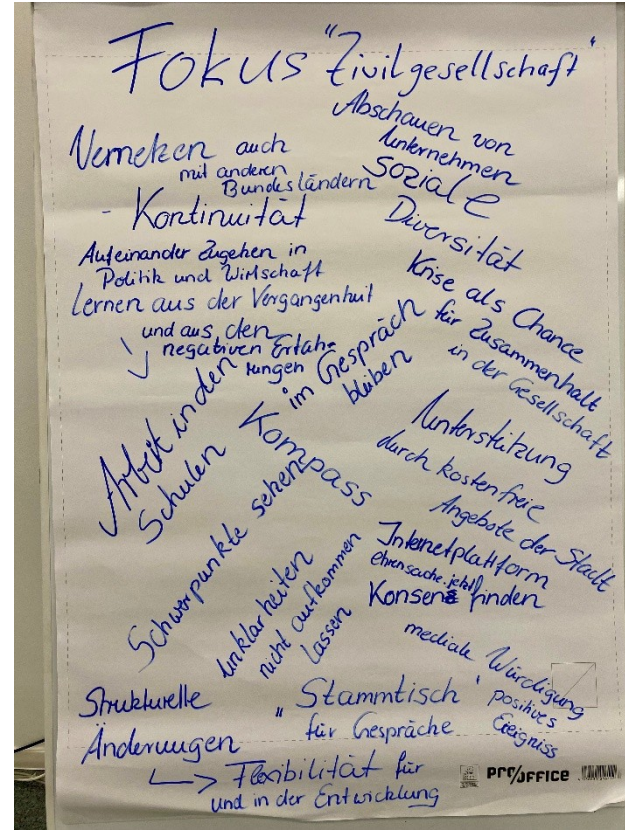 Fokus "Zivilgesellschaft"
Abschauen von
Unternehmen
Vernetzen auch
mit anderen
Bundesländern
Soziale
Diversität
- Kontinuität
Aufeinander Zugehen in
Politik und Wirtschaft
Krise als Chance
für Zusammenhalt
in der Gesellschaft
Lernen aus der Vergangenheit
und aus den
negativen Erfah-
rungen
im Gespräch
bleiben
Arbeit in den
Schulen
Kompass
Unterstützung
durch kostenfreie
Angebote der Stadt
Schwerpunkte setzen
Unklarheiten
nicht aufkommen
lassen
Internetplattform
ehrensache.jetzt
Konsens finden
mediale Würdigung
positives
Ereigniss
Strukturelle
Änderungen
"Stammtisch"
für Gespräche
-> Flexibilität für
und in der Entwicklung
PRO/OFFICE